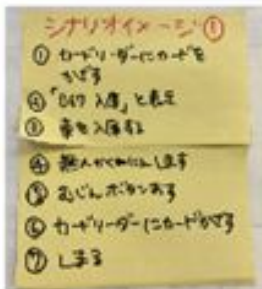 シナリオイメージ①
① カードリーダーにカードを
かざす
② 「 入庫」と表示
③ 車を入庫する
④ 無人かくにんします
⑤ むじんボタンおす
⑥ カードリーダーにカードかざす
⑦ しまる